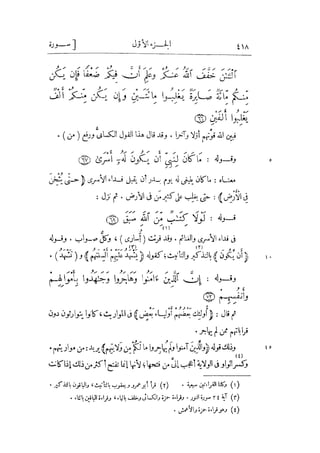 ٤١٨ الجزء الأول [ سورة
ٱلْـَٰٔنَ خَفَّفَ ٱللَّهُ عَنكُمْ وَعَلِمَ أَنَّ فِيكُمْ ضَعْفًا فَإِن يَكُن
مِّنكُم مِّا۟ئَةٌ صَابِرَةٌ يَغْلِبُوا۟ مِا۟ئَتَيْنِ وَإِن يَكُن مِّنكُمْ أَلْفٌ
يَغْلِبُوٓا۟ أَلْفَيْنِ ﴿٦٦﴾
فبين الله قوتهم أولا وآخرا . وقد قال هذا القول الكسائى ورفع ( من ) .
٥ وقوله : مَا كَانَ لِنَبِىٍّ أَن يَكُونَ لَهُۥٓ أَسْرَىٰ ﴿٦٧﴾
معناه : ما كان ينبغى له يوم بدر أن يقبل فداء الأسرى ﴿ حتى يثخن
فى الأرض ﴾ : حتى يغلب على كثير من فى الأرض . ثم نزل :
قوله : لَّوْلَا كِتَٰبٌ مِّنَ ٱللَّهِ سَبَقَ ﴿٦٨﴾
فى فداء الأسرى والغنائم . وقد قرئت ( أسارى ) (١) ، وكل صواب . وقوله
١٠ ﴿ أن يكون ﴾ بالتذكير والتأنيث (٢) ؛ كقوله ﴿ يشهد عليهم ألسنتهم ﴾ (٣) و ( تشهد ) .
وقوله : إِنَّ ٱلَّذِينَ ءَامَنُوا۟ وَهَاجَرُوا۟ وَجَٰهَدُوا۟ بِأَمْوَٰلِهِمْ
وَأَنفُسِهِمْ ﴿٧٢﴾
ثم قال : ﴿ أولئك بعضهم أولياء بعض ﴾ فى المواريث ، كانوا يتوارثون دون
قراباتهم ممن لم يهاجر .
١٥ وذلك قوله ﴿ والذين آمنوا ولم يهاجروا ما لكم من ولايتهم ﴾ يريد : من مواريثهم .
وكسر الواو فى الولاية (٤) أعجب إلىّ من فتحها ؛ لأنها إنما تفتح أكثر من ذلك إذا كانت
(١) كتا القراءتين سبعية . (٢) قرأ أبو عمرو ويعقوب بالتأنيث ، والباقون بالتذكير .
(٣) آية ٢٤ سورة النور . وقراءة حمزة والكسائى وخلف بالياء ، وقراءة الباقين بالتاء .
(٤) وهو قراءة حمزة والأعمش .